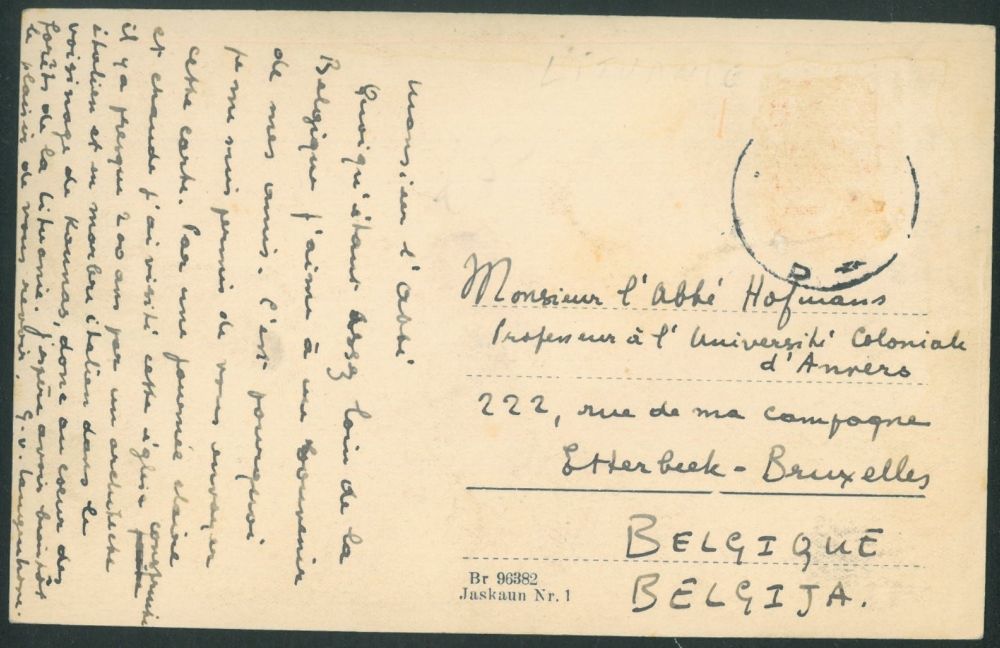 Monsieur l'Abbé
Quoiqu'étant assez loin de la
Belgique j'aime à me souvenir
de mes amis. C'est pourquoi
je me suis permis de vous envoyer
cette carte. Par une journée claire
et chaude j'ai visité cette église construite
il y a presque 200 ans par un architecte
italien et en marbre italien dans le
voisinage de Kaunas, donc au coeur des
forêts de la Lituanie. J'espère avoir bientôt
le plaisir de vous revoir. G. v.
LITUANIE
Monsieur l'Abbé Hofmans
Professeur à l'Université Coloniale
d'Anvers
222, rue de ma campagne
Etterbeek - Bruxelles
BELGIQUE
BELGIJA.
Br 96382
Jaskaun Nr. 1